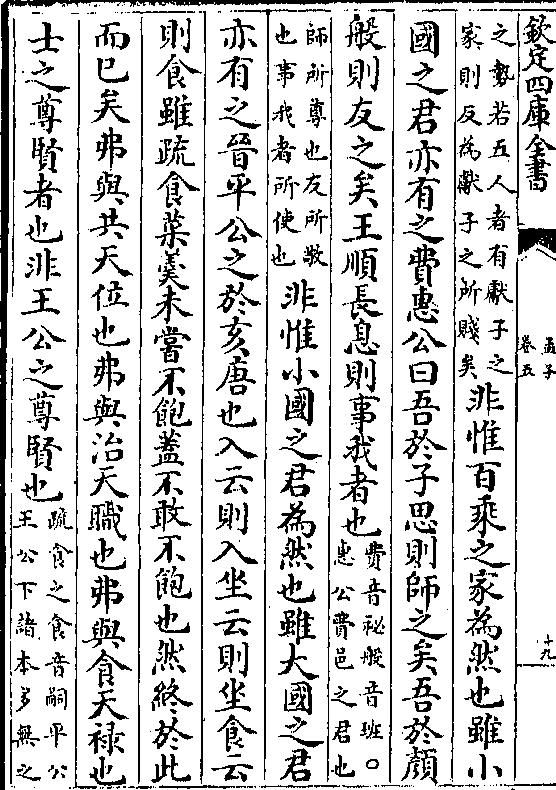 欽定四庫全書
孟子
卷五
十九
之勢若五人者有獻子之
家則反為獻子之所賤矣
非惟百乘之家為然也雖小
國之君亦有之費惠公曰吾於子思則師之矣吾於顔
般則友之矣王順長息則事我者也
費音秘般音班○
惠公費邑之君也
師所尊也友所敬
也事我者所使也
非惟小國之君為然也雖大國之君
亦有之晉平公之於亥唐也入云則入坐云則坐食云
則食雖疏食菜羮未嘗不飽蓋不敢不飽也然終於此
而已矣弗與共天位也弗與治天職也弗與食天禄也
士之尊賢者也非王公之尊賢也
疏食之食音嗣平公
王公下諸本多無之